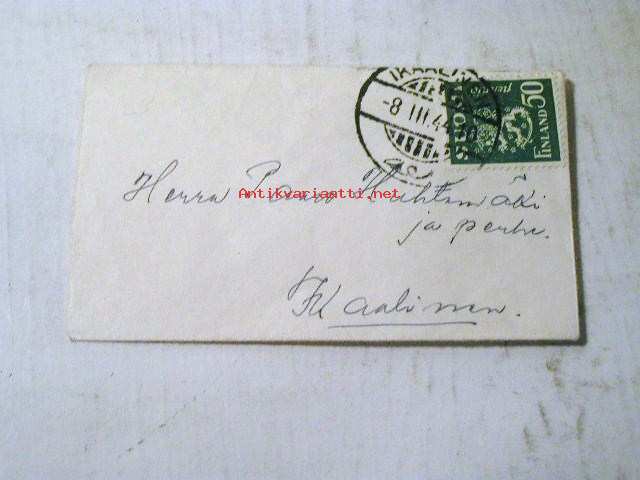 IKAALINEN
-8 III.44
SUOMI
FINLAND 50
Herra Paavo Huhtamäki
ja perhe.
Ikaalinen.
Antikvariaatti.net